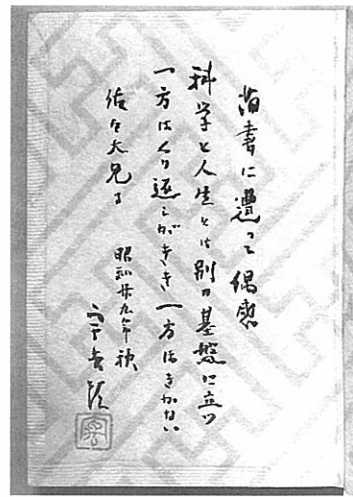 書に遭って偶感
科学と人生とは別の基盤に立つ
一方はくり返しがきき一方はきかない
佐々大兄
昭和廿九年秋
宇吉郎